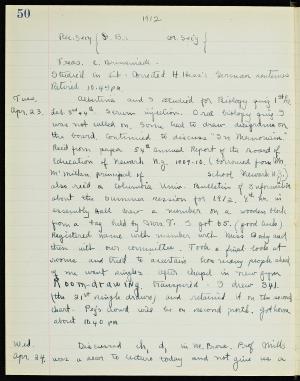 50
1912
Rec. Sec'y { S. B. Cor. Sec'y {
Treas. C.
Studied in Lib. Donated H German sentences
Retired 10.45 P.M.
Tues. Apr. 23. Albertina and I studied for Biology quiz 1st hr.
Serum injection. Oral biology quiz I
was not called on. Some had to draw designs on
the board. Continued to discuss "In Memoriam"
Read from paper 54th Annual Report of the Board of
Education of Newark N.J. 1909-10. (borrowed from Mr.
McMillan principal of School Newark N.J.)
also read a Columbia Univ. Bulletin of Information
about the Summer session for 1912. 4th hr. in
assembly hall saw a number on a wooden block
from a bag held by Mrs. T. I got 65. (good luck)
Registered name with number with Miss and
then with our committee. Took a final look at
rooms and tried to ascertain how many people ahead
of me want singles after chapel in new gym
Room-drawing transpired. I drew 341
(the 21st single drawn) and retained it on the second
chart. Peg's crowd will be on second north. got home
about 10.40 P.M.
Wed. Apr. 24. Discussed ch. d, in Mr. Brown. Prof. Mills
was a dear to lecture today and not give us a